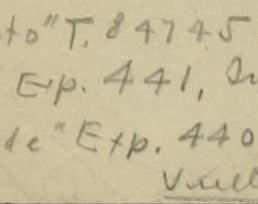 to" T. 84745
Exp. 441,
de" Exp. 440